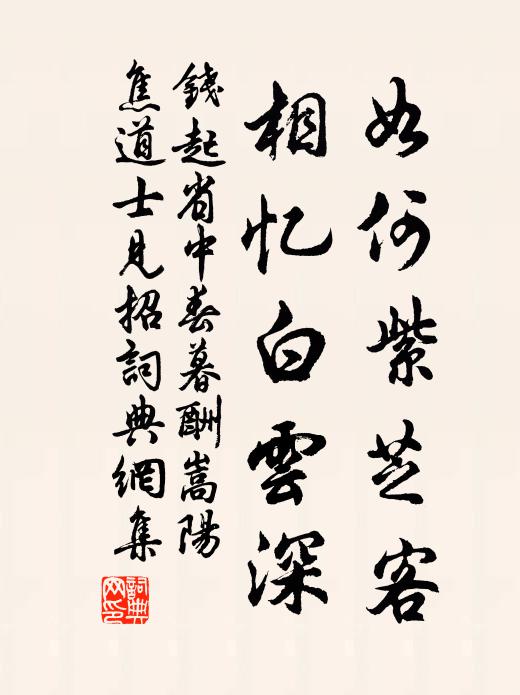 如何紫芝客
相忆白雲深
錢起省中春暮酬嵩陽
焦道士見招詞典網集
詞典網印